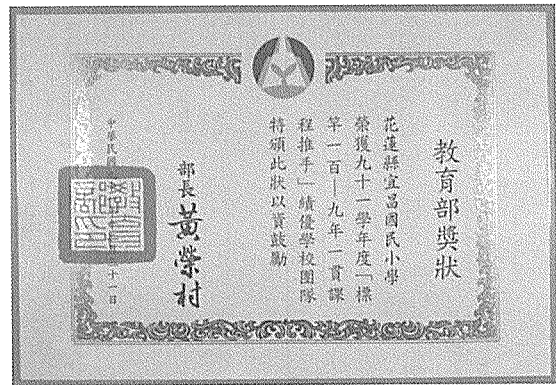 教育部獎狀
花蓮縣宜昌國民小學
榮獲九十一學年度「標
竿一百—九年一貫課
程推手」績優學校團隊
特頒此狀以資鼓勵
部長 黃榮村
中華民國 十一日